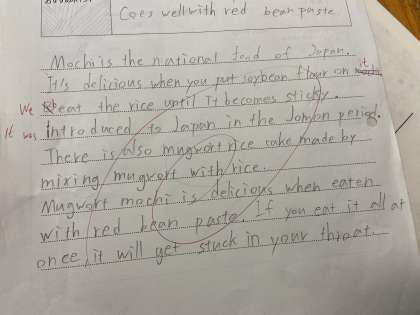 Goes well with red bean paste
Mochi is the national food of Japan.
It's delicious when you put soybean flour on it
We beat the rice until it becomes sticky.
It was introduced to Japan in the Jomon period.
There is also mugwort rice cake made by
mixing mugwort with rice.
Mugwort mochi is delicious when eaten
with red bean paste. If you eat it all at
once, it will get stuck in your throat.